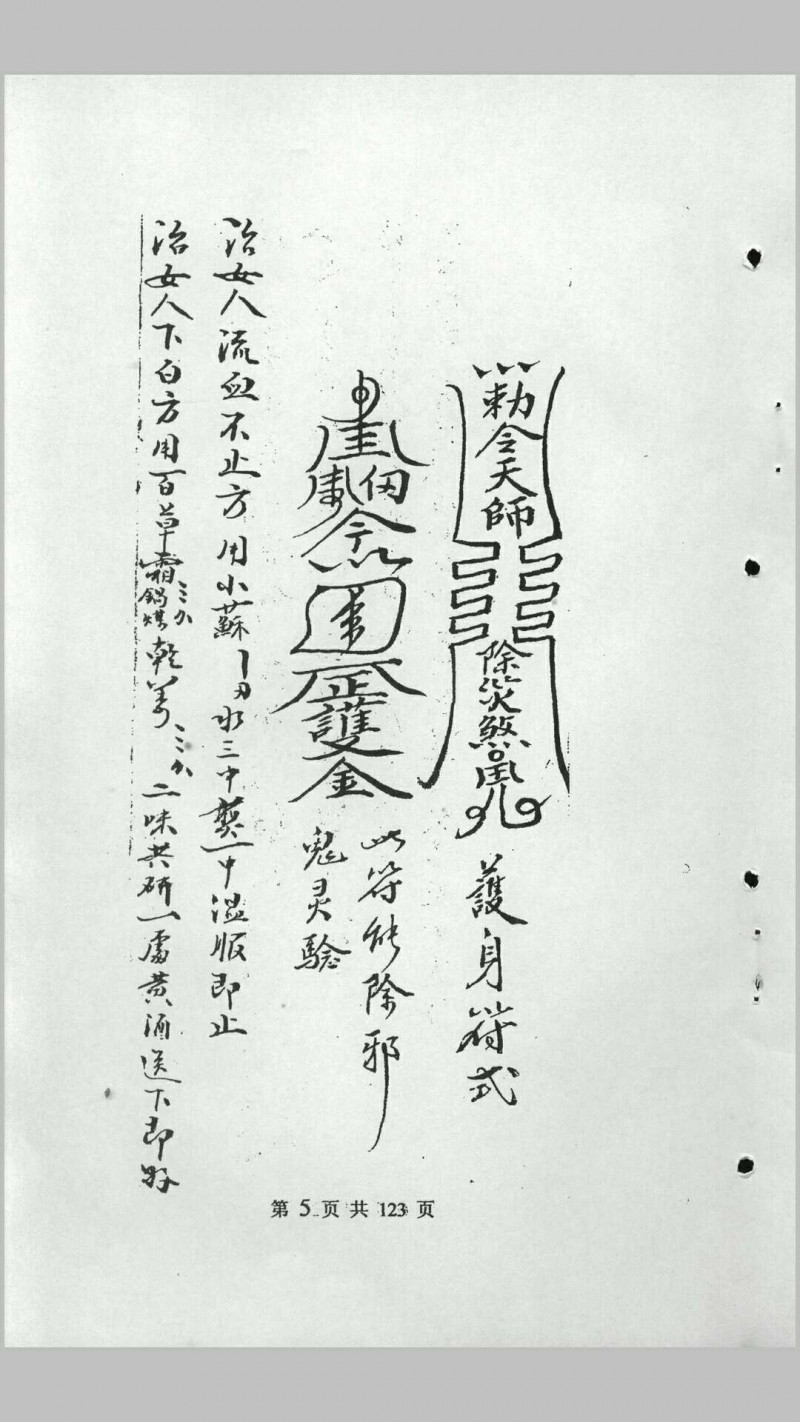 勅令天師
除災煞
護身符式
令
正護金
此符能除邪
鬼灵驗
治女人流血不止方用小蘇 水三中煎一中温服即止
治女人下白方用百草霜鍋煤 乾薑 二味共研一處黄酒送下即好
第 5 页 共 123 页